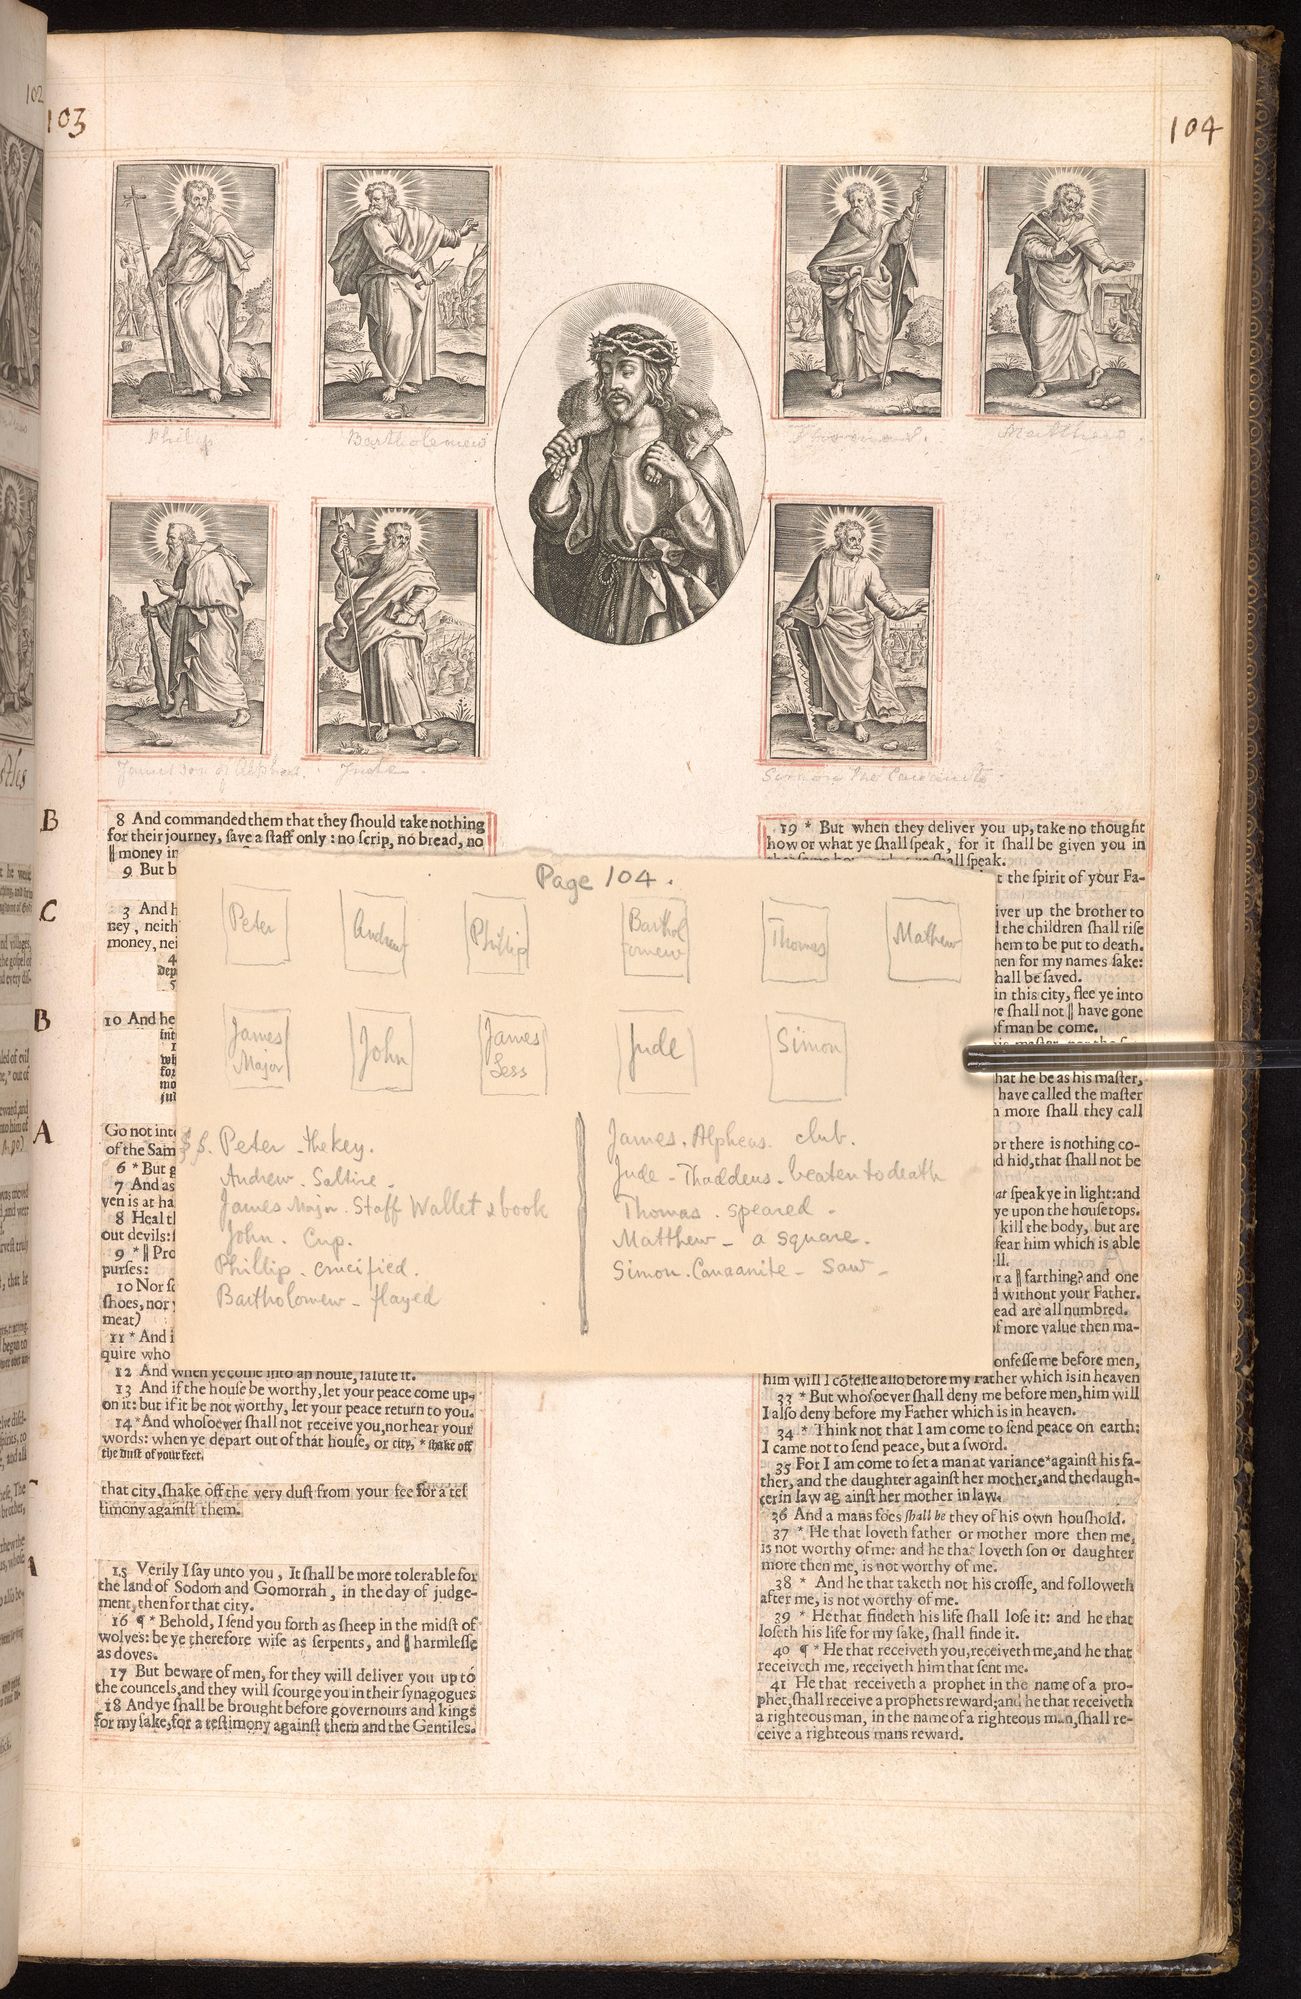 102
103
104
Philip
Bartholemew
Matthew
James son of Alpheus.
Jude.
Simon the Canaanite
B
8 And commanded them that they should take nothing
for their journey, ſave a ſtaff only : no ſcrip, no bread, no
‖ money in
9 But b
C
3 And h
ney, neith
money, nei
4
dep
5
B
10 And he
int
1
wh
for
mo
jud
A
Go not int
of the Sam
6 * But g
7 And as
ven is at ha
8 Heal th
out devils: f
9 * ‖ Pro
purſes:
10 Nor ſc
ſhoes, nor y
meat)
11 * And i
quire who
12 And when ye come into an houſe, ſalute it.
13 And if the houſe be worthy, let your peace come up-
on it: but if it be not worthy, let your peace return to you.
14 * And whoſoever ſhall not receive you, nor hear your
words: when ye depart out of that houſe, or city, * ſhake off
the duſt of your feet.
that city, ſhake off the very duſt from your fee for a teſ
timony againſt them.
15 Verily I ſay unto you, It ſhall be more tolerable for
the land of Sodom and Gomorrah, in the day of judge-
ment, then for that city.
16 ¶ * Behold, I ſend you forth as ſheep in the midſt of
wolves: be ye therefore wiſe as ſerpents, and ‖ harmleſſe
as doves.
17 But beware of men, for they will deliver you up to
the councels, and they will ſcourge you in their ſynagogues
18 And ye ſhall be brought before governours and kings
for my ſake, for a teſtimony againſt them and the Gentiles.
Page 104.
Peter
Andrew
Phillip
Barthol
omew
Thomas
Mathew
James
Major
John
James
Less
Jude
Simon
Peter - the key.
Andrew. Saltire -
James Major. Staff Wallet & book
John. Cup.
Phillip. crucified.
Bartholomew - flayed
James. Alpheus. club.
Jude - Thaddeus. beaten to death
Thomas. speared -
Matthew - a square.
Simon. Canaanite - saw -
19 * But when they deliver you up, take no thought
how or what ye ſhall ſpeak, for it ſhall be given you in
that ſame hour what ye ſhall ſpeak.
t the ſpirit of your Fa-
iver up the brother to
d the children ſhall riſe
hem to be put to death.
men for my names ſake:
hall be ſaved.
in this city, flee ye into
ye ſhall not ‖ have gone
of man be come.
hat he be as his maſter,
have called the maſter
more ſhall they call
or there is nothing co-
d hid, that ſhall not be
at ſpeak ye in light: and
ye upon the houſetops.
kill the body, but are
fear him which is able
ll.
r a ‖ farthing? and one
d without your Father.
ead are all numbred.
of more value then ma-
onfeſſe me before men,
him will I cōfeſſe alſo before my Father which is in heaven
33 * But whoſoever ſhall deny me before men, him will
I alſo deny before my Father which is in heaven.
34 * Think not that I am come to ſend peace on earth:
I came not to ſend peace, but a ſword.
35 For I am come to ſet a man at variance * againſt his fa-
ther, and the daughter againſt her mother, and the daugh-
ter in law ag ainſt her mother in law.
36 And a mans foes ſhall be they of his own houſhold.
37 * He that loveth father or mother more then me,
is not worthy of me: and he that loveth ſon or daughter
more then me, is not worthy of me.
38 * And he that taketh not his croſſe, and followeth
after me, is not worthy of me.
39 * He that findeth his life ſhall loſe it: and he that
loſeth his life for my ſake, ſhall finde it.
40 ¶ * He that receiveth you, receiveth me, and he that
receiveth me, receiveth him that ſent me.
41 He that receiveth a prophet in the name of a pro-
phet, ſhall receive a prophets reward; and he that receiveth
a righteous man, in the name of a righteous man, ſhall re-
ceive a righteous mans reward.